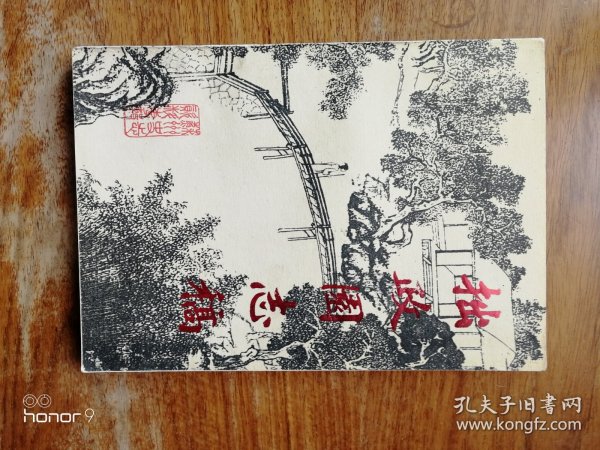 拙政園志稿
honor 9
孔夫子旧書网
www.kongfz.com